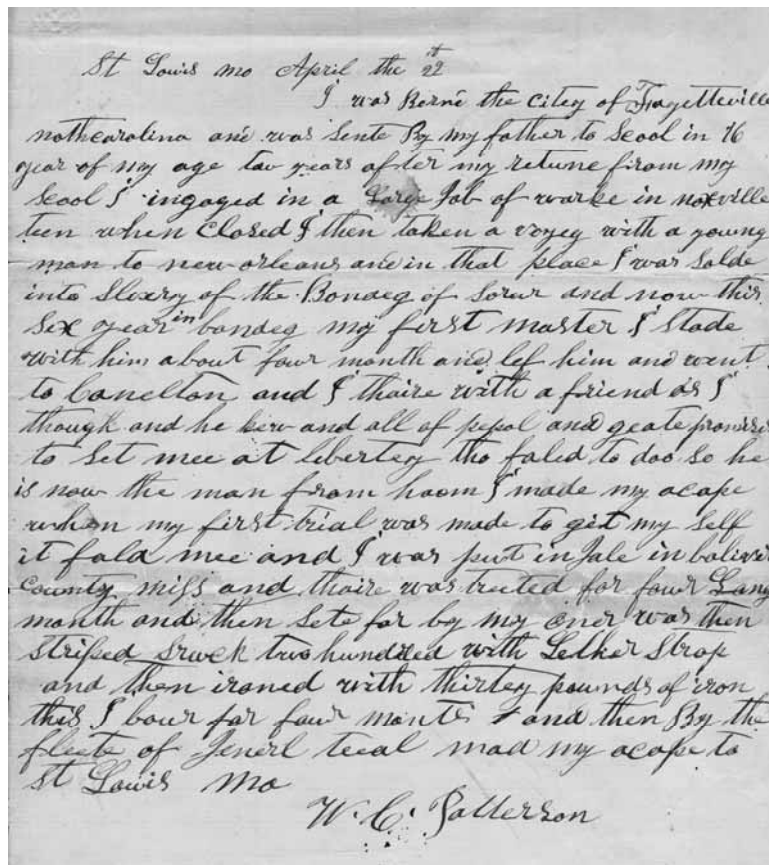 St Louis mo April the 22 th
I was Borne the citey of Fayetteville
nothcarolina and was sente By my father to scool in 16
year of my age tow years after my retune from my
scool I ingaged in a Large Job of warke in noxville
teen when closed I then taken a voyeg with a young
man to new orleans and in that place I was solde
into slavry of the Bondeg of sorur and now this
six year in bondeg my first master I stade
with him about four month and lef him and went
to Canelton and I thaire with a friend as I
though and he and all of pepol and geate promises
to set mee at libertey tho faled to doo so he
is now the man from hoom I made my acape
when my first trial was made to git my self
it fald mee and I was put in Jale in bolivir
county miss and thaire was treted for four Lang
month and then sete for by my oner was then
striped sruck two hundred with Lether strap
and then ironed with thirtey pounds of iron
this I bour for four monts and then By the
fleete of Jenerl teal mad my acape to
St Louis Mo
W. C. Patterson